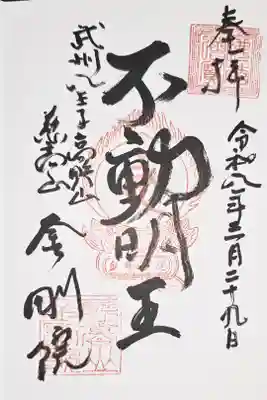 奉拝
令和八年三月二十九日
不動明王
武州八王子高照山
慈高山
金剛院